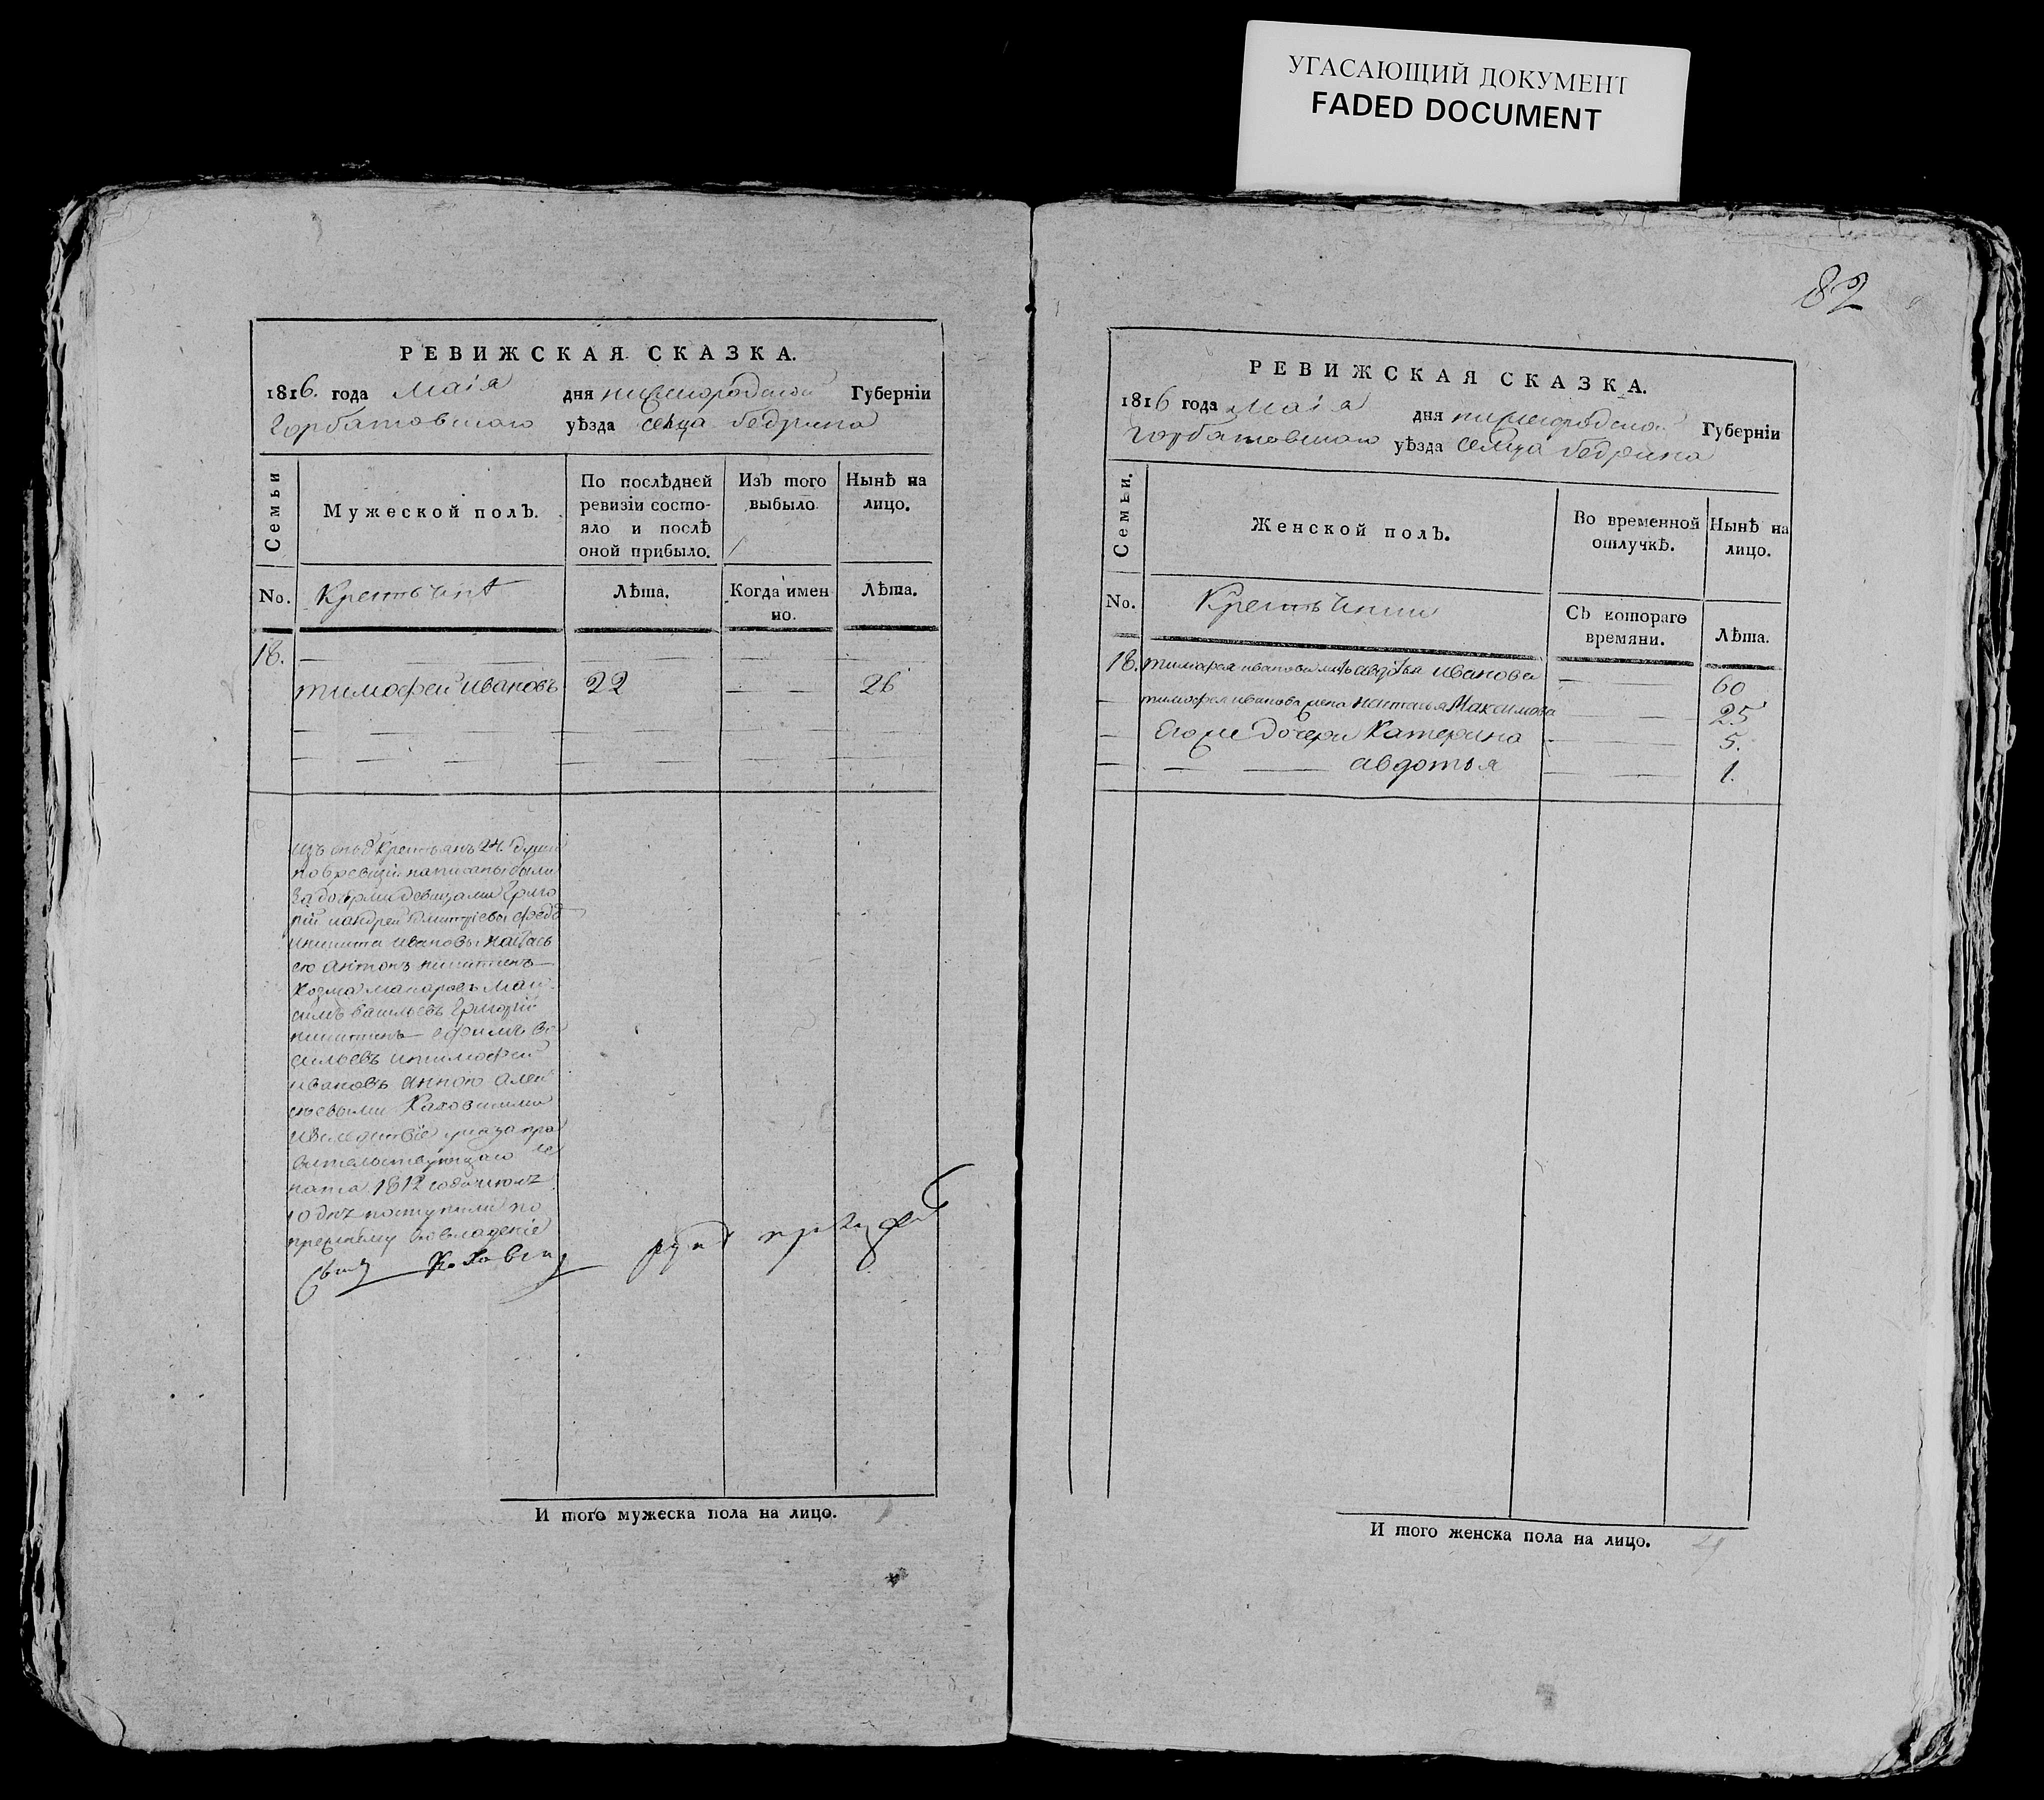 УГАСАЮЩИЙ ДОКУМЕНТ
FADED DOCUMENT
РЕВИЖСКАЯ СКАЗКА.
1816. года Маія дня нижегородской Губерніи
Горбатовскаго уѣзда селца бедрина
Семьи
Мужеской полъ.
По послѣдней ревизіи состояло и послѣ оной прибыло.
Изъ того выбыло
Нынѣ на лицо.
No.
Крестьянѣ
Лѣта.
Когда именно.
Лѣта.
18.
тимофей ивановъ 22 26
крестьянъ 24. души
поревизіи написаны были
девицами Григо
никита ивановы
его антонъ никитинъ
Козма макаровъ Мак
симъ васильевъ Григорій
никитинъ ефимъ Ва
сильевъ итимофей
ивановъ анною алек
сеевыми Каховскими
ивследствіе указа пра
вительствующаго се
ната 1812 года
10 дня поступили по
прежнему во владеніе
82
РЕВИЖСКАЯ СКАЗКА.
1816 года Маія дня нижегородской Губерніи
Горбатовскаго уѣзда селца бедрина
Семьи.
Женской полъ.
Во временной отлучкѣ.
Нынѣ на лицо.
No.
Крестьянки
Съ котораго времяни.
Лѣта.
18. тимофея иванова мать авдотья иванова 60
тимофея иванова жена настасья Максимова 25
Его же дочери Катерина 5.
авдотья 1.
И того мужеска пола на лицо.
И того женска пола на лицо. 4